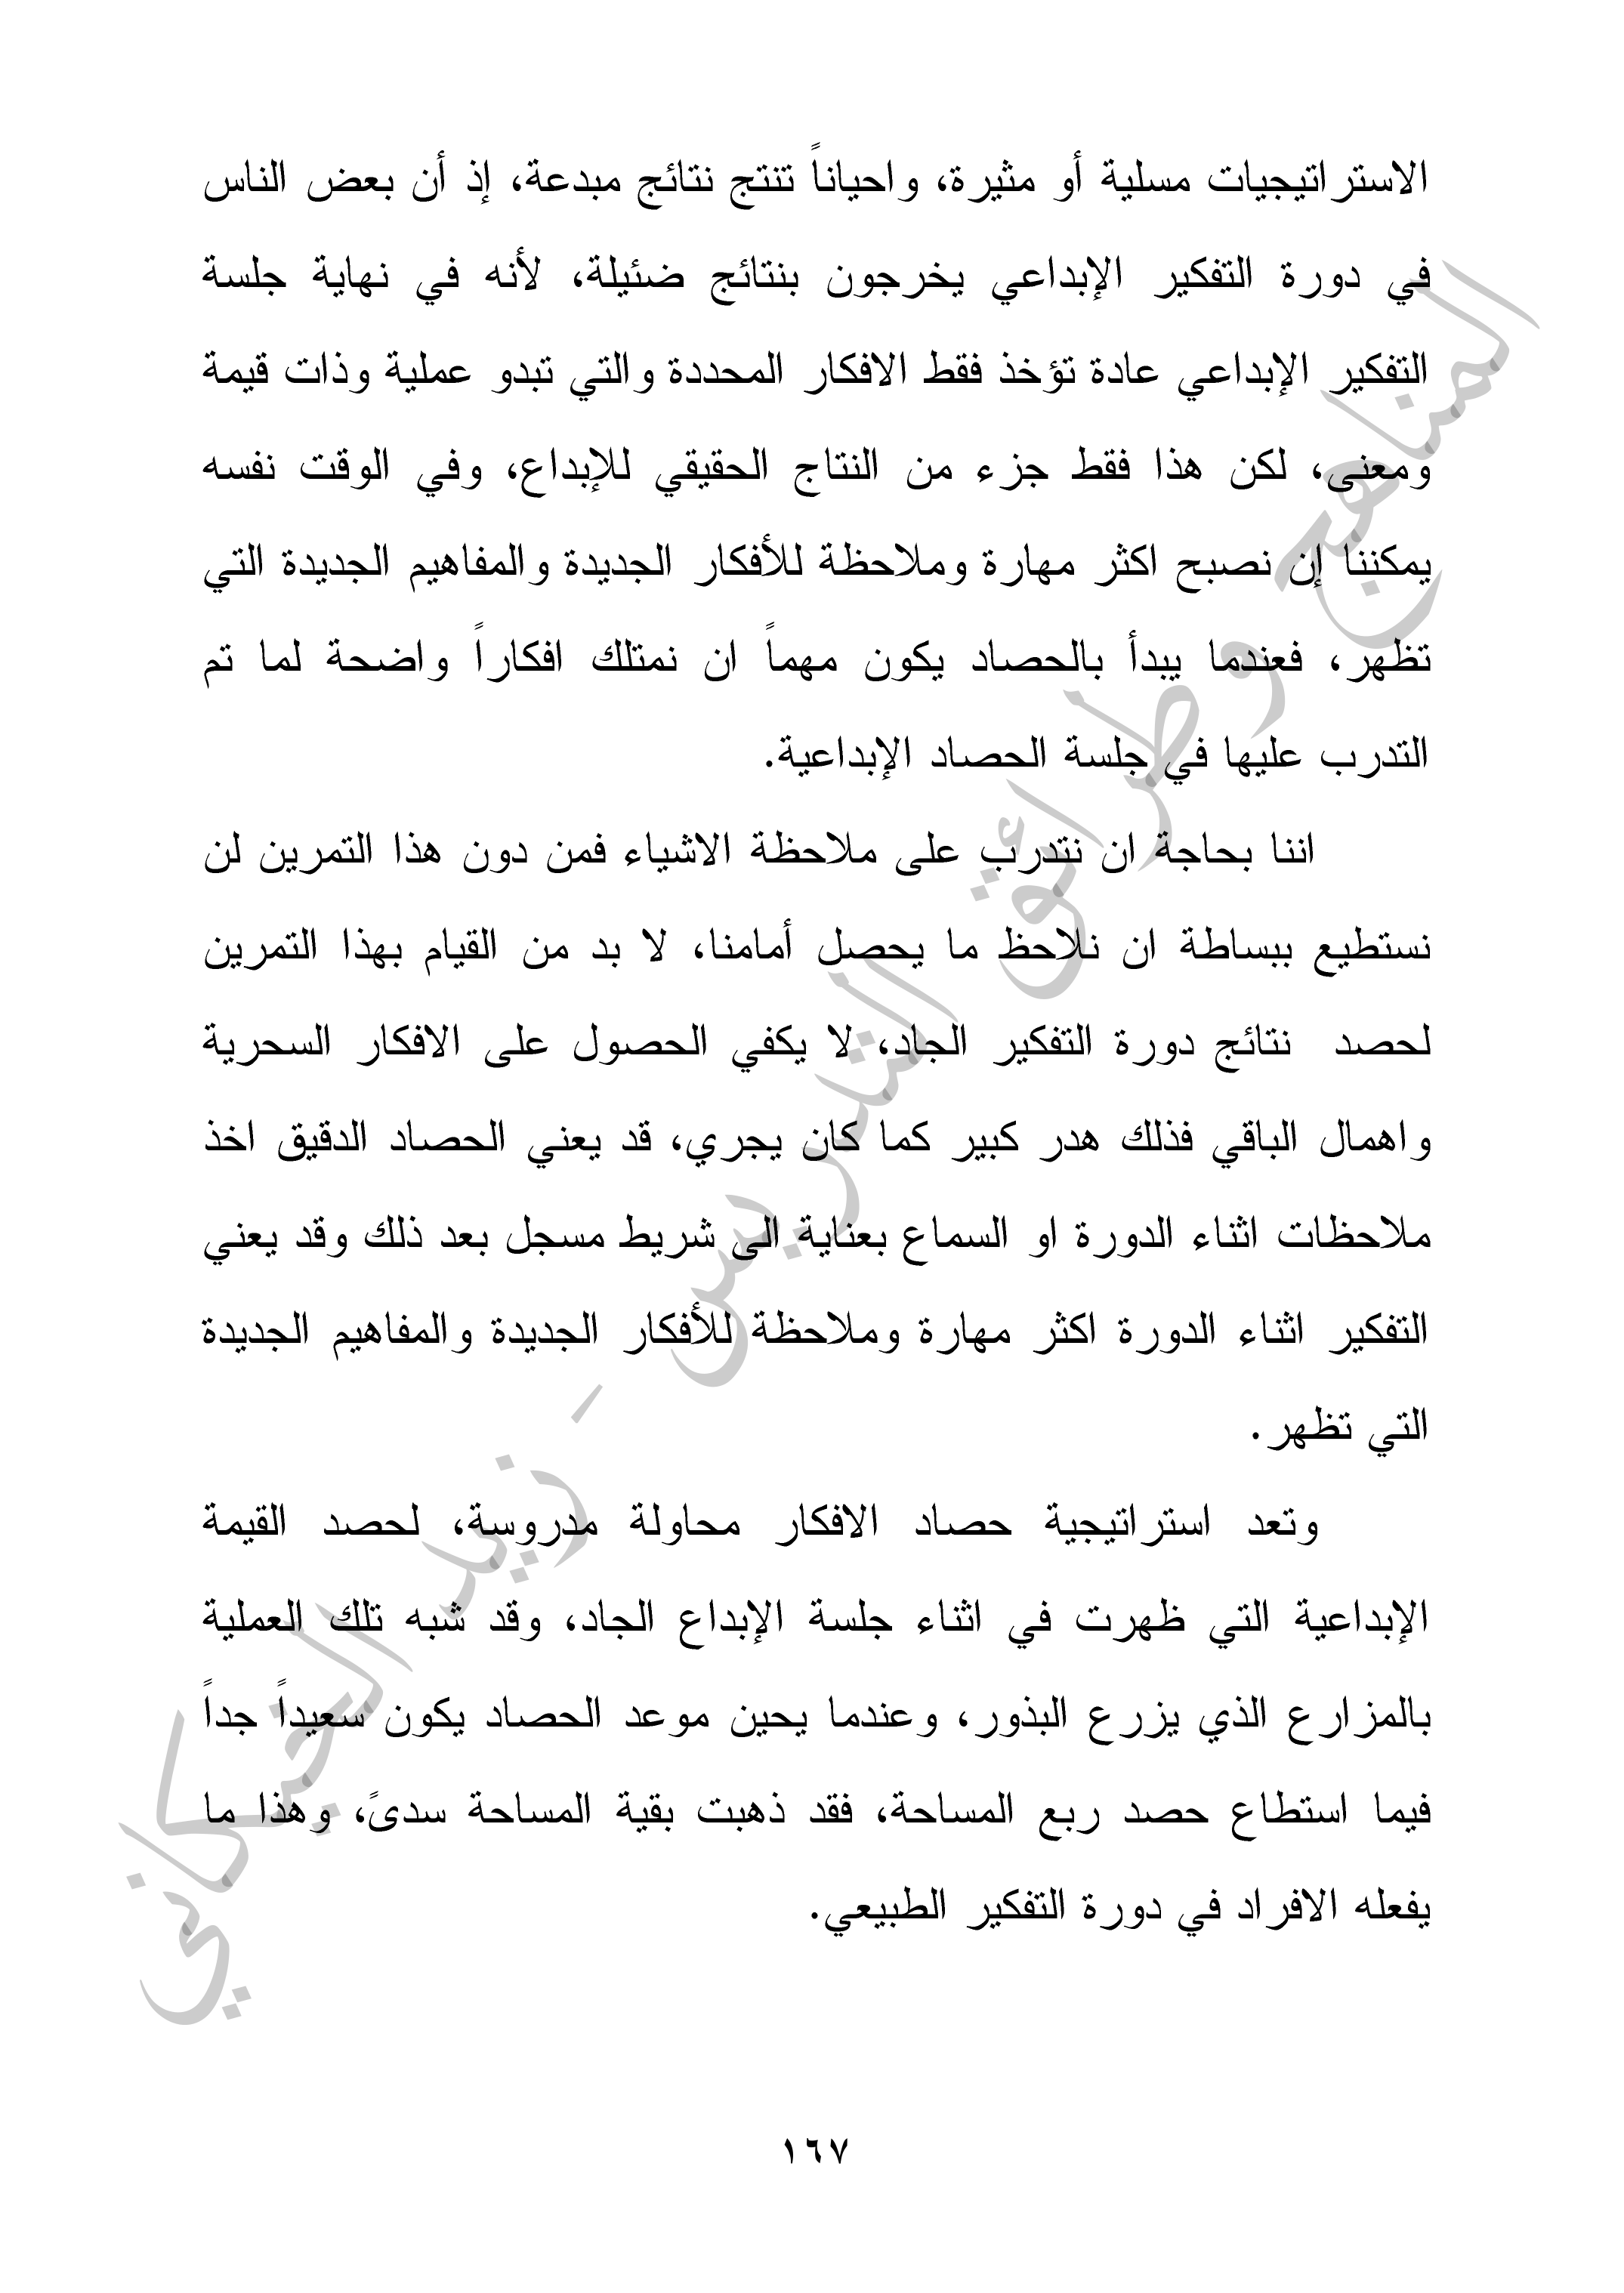 الاستراتيجيات مسلية أو مثيرة، واحياناً تنتج نتائج مبدعة، إذ أن بعض الناس
في دورة التفكير الإبداعي يخرجون بنتائج ضئيلة، لأنه في نهاية جلسة
التفكير الإبداعي عادة تؤخذ فقط الافكار المحددة والتي تبدو عملية وذات قيمة
ومعنى، لكن هذا فقط جزء من النتاج الحقيقي للإبداع، وفي الوقت نفسه
يمكننا إن نصبح اكثر مهارة وملاحظة للأفكار الجديدة والمفاهيم الجديدة التي
تظهر، فعندما يبدأ بالحصاد يكون مهماً ان نمتلك افكاراً واضحة لما تم
التدرب عليها في جلسة الحصاد الإبداعية.
اننا بحاجة ان نتدرب على ملاحظة الاشياء فمن دون هذا التمرين لن
نستطيع ببساطة ان نلاحظ ما يحصل أمامنا، لا بد من القيام بهذا التمرين
لحصد نتائج دورة التفكير الجاد، لا يكفي الحصول على الافكار السحرية
واهمال الباقي فذلك هدر كبير كما كان يجري، قد يعني الحصاد الدقيق اخذ
ملاحظات اثناء الدورة او السماع بعناية الى شريط مسجل بعد ذلك وقد يعني
التفكير اثناء الدورة اكثر مهارة وملاحظة للأفكار الجديدة والمفاهيم الجديدة
التي تظهر.
وتعد استراتيجية حصاد الافكار محاولة مدروسة، لحصد القيمة
الإبداعية التي ظهرت في اثناء جلسة الإبداع الجاد، وقد شبه تلك العملية
بالمزارع الذي يزرع البذور، وعندما يحين موعد الحصاد يكون سعيداً جداً
فيما استطاع حصد ربع المساحة، فقد ذهبت بقية المساحة سدىً، وهذا ما
يفعله الافراد في دورة التفكير الطبيعي.
المناهج وطرائق التدريس - زيد الخيكاني
١٦٧